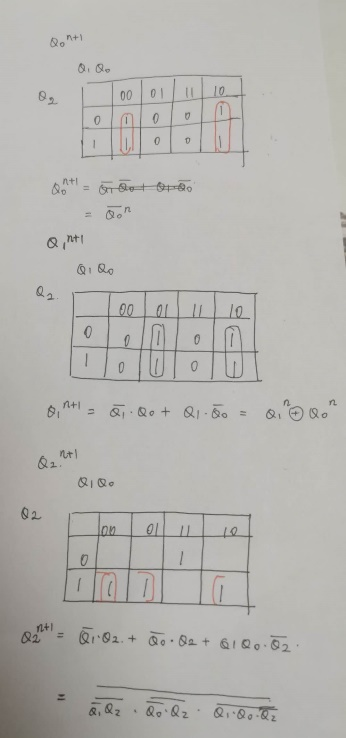 Q₀ⁿ⁺¹
Q₁ Q₀
Q₂ 00 01 11 10
0 1 0 0 1
1 1 0 0 1
Q₀ⁿ⁺¹ = Q̅₁·Q̅₀ + Q₁·Q̅₀
= Q̅₀ⁿ
Q₁ⁿ⁺¹
Q₁ Q₀
Q₂. 00 01 11 10
0 0 1 0 1
1 0 1 0 1
Q₁ⁿ⁺¹ = Q̅₁·Q₀ + Q₁·Q̅₀ = Q₁ⁿ ⊕ Q₀ⁿ
Q₂.ⁿ⁺¹
Q₁ Q₀
Q₂ 00 01 11 10
0 1
1 1 1 1
Q₂ⁿ⁺¹ = Q̅₁·Q₂. + Q̅₀·Q₂ + Q₁Q₀·Q̅₂.
= \overline{\overline{Q̅₁Q₂} · \overline{Q̅₀·Q₂} · \overline{Q₁·Q₀·Q̅₂}}